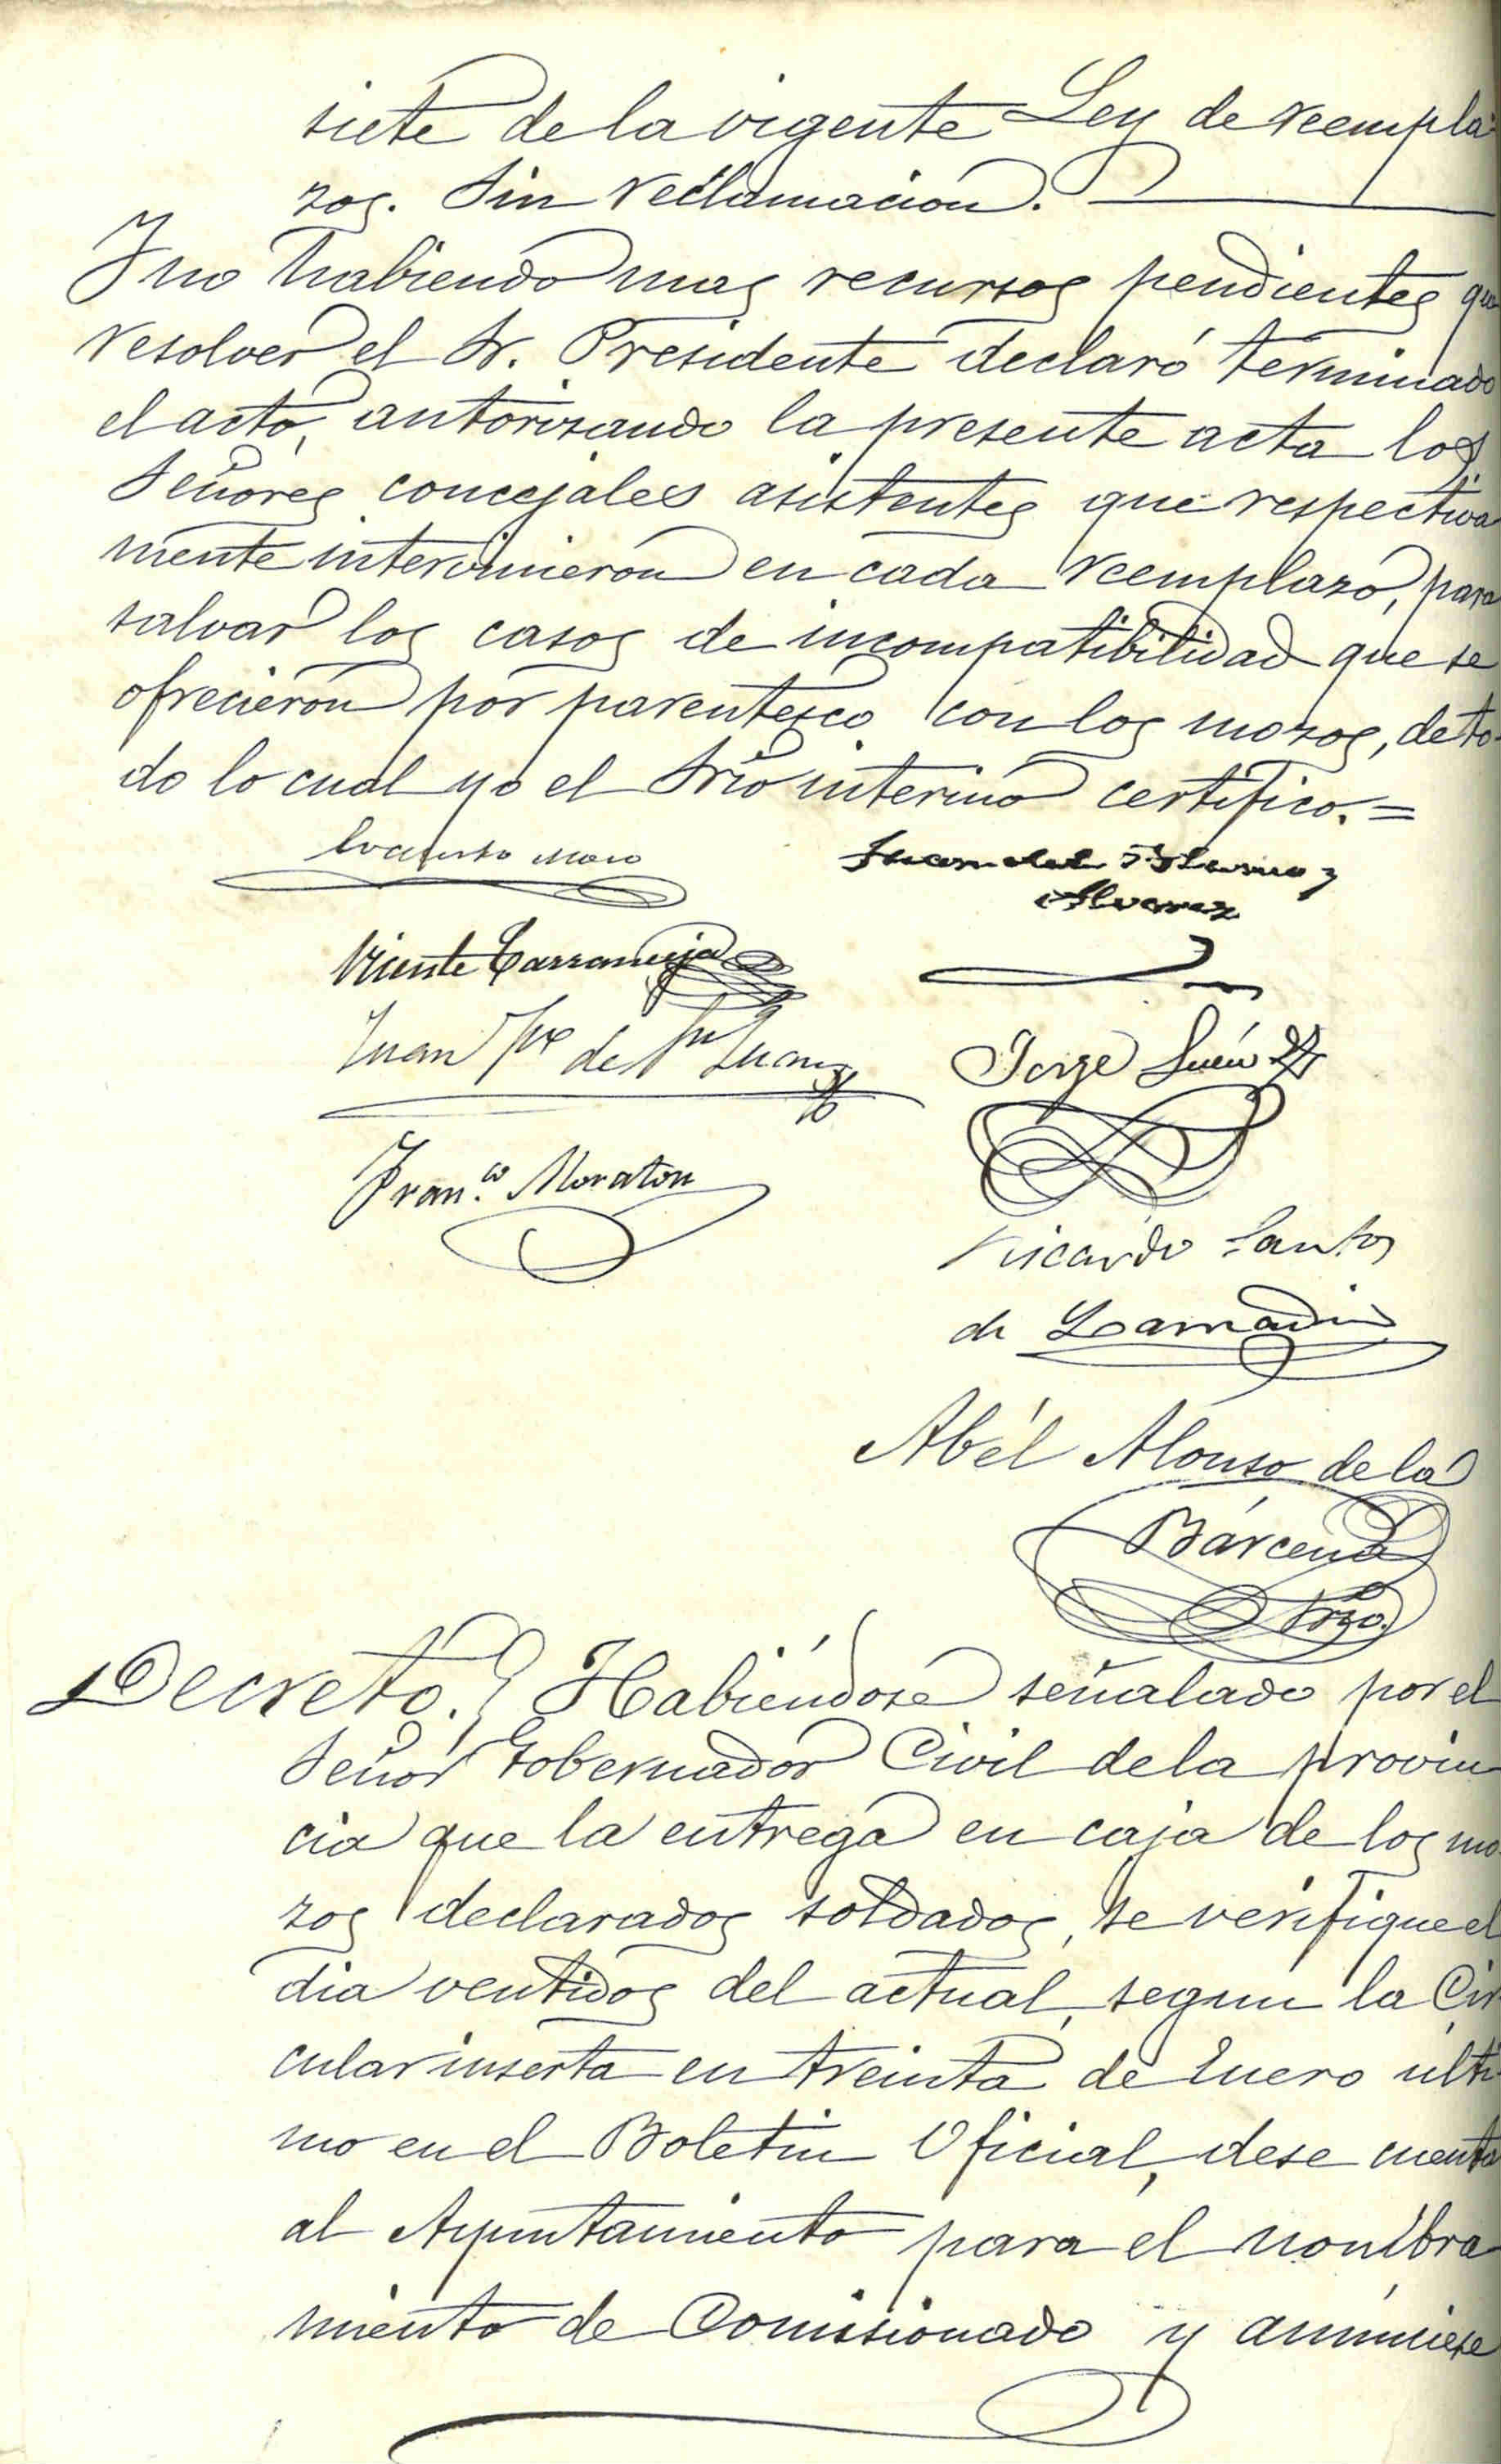 siete de la vigente Ley de reempla-
zos. Sin reclamacion.
Y no habiendo mas recursos pendientes que
resolver el Sr. Presidente declaró terminado
el acto, autorizando la presente acta los
Señores concejales asistentes que respectiva
mente intervinieron en cada reemplazo, para
salvar los casos de incompatibilidad que se
ofrecieron por parentesco con los mozos, de to-
do lo cual yo el Srio interino certifico. =
Juan del Alamo y
Alvarez
Vicente
Juan de Sn Juan
Jorge
Franco. Moraton
Ricardo Santos
de Lamadrid
Abél Alonso de la
Bárcena
Srio.
Decreto. Habiéndose señalado por el
Señor Gobernador Civil de la provin
cia que la entrega en caja de los mo-
zos declarados soldados, se verifique el
dia ventidos del actual, segun la Cir
cular inserta en treinta de Enero ulti-
mo en el Boletin Oficial, dese cuenta
al Ayuntamiento para el nombra
miento de Comisionado y anúnciese